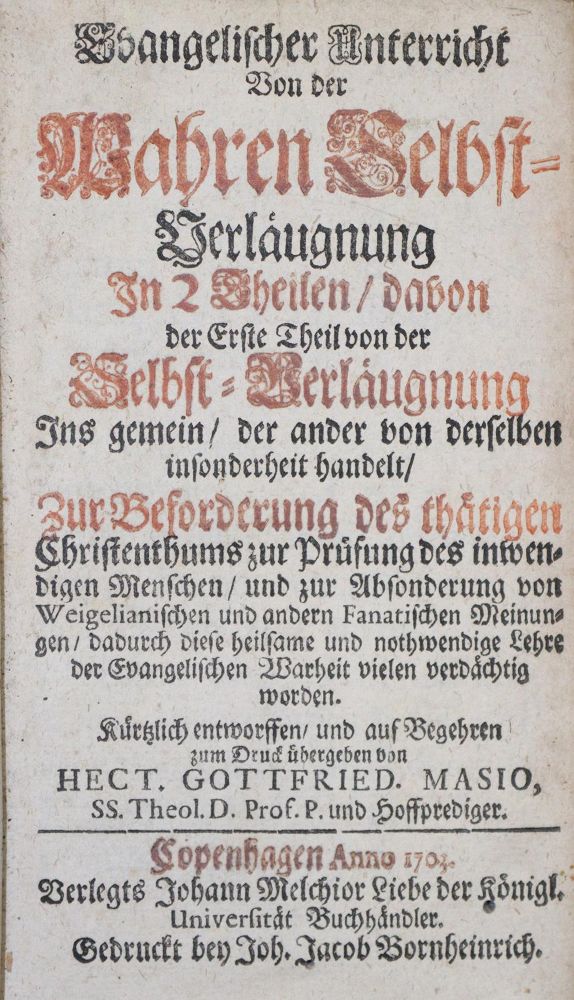 Evangelischer Unterricht
Von der
Wahren Selbst-
Verläugnung
In 2 Theilen / davon
der Erste Theil von der
Selbst-Verläugnung
Ins gemein / der ander von derselben
insonderheit handelt /
Zur Beforderung des thätigen
Christenthums zur Prüfung des inwen-
digen Menschen / und zur Absonderung von
Weigelianischen und andern Fanatischen Meinun-
gen / dadurch diese heilsame und nothwendige Lehre
der Evangelischen Warheit vielen verdächtig
worden.
Kürtzlich entworffen / und auf Begehren
zum Druck übergeben von
HECT. GOTTFRIED. MASIO,
SS. Theol. D. Prof. P. und Hoffprediger.
Copenhagen Anno 1703.
Verlegts Johann Melchior Liebe der Königl.
Universität Buchhändler.
Gedruckt bey Joh. Jacob Bornheinrich.